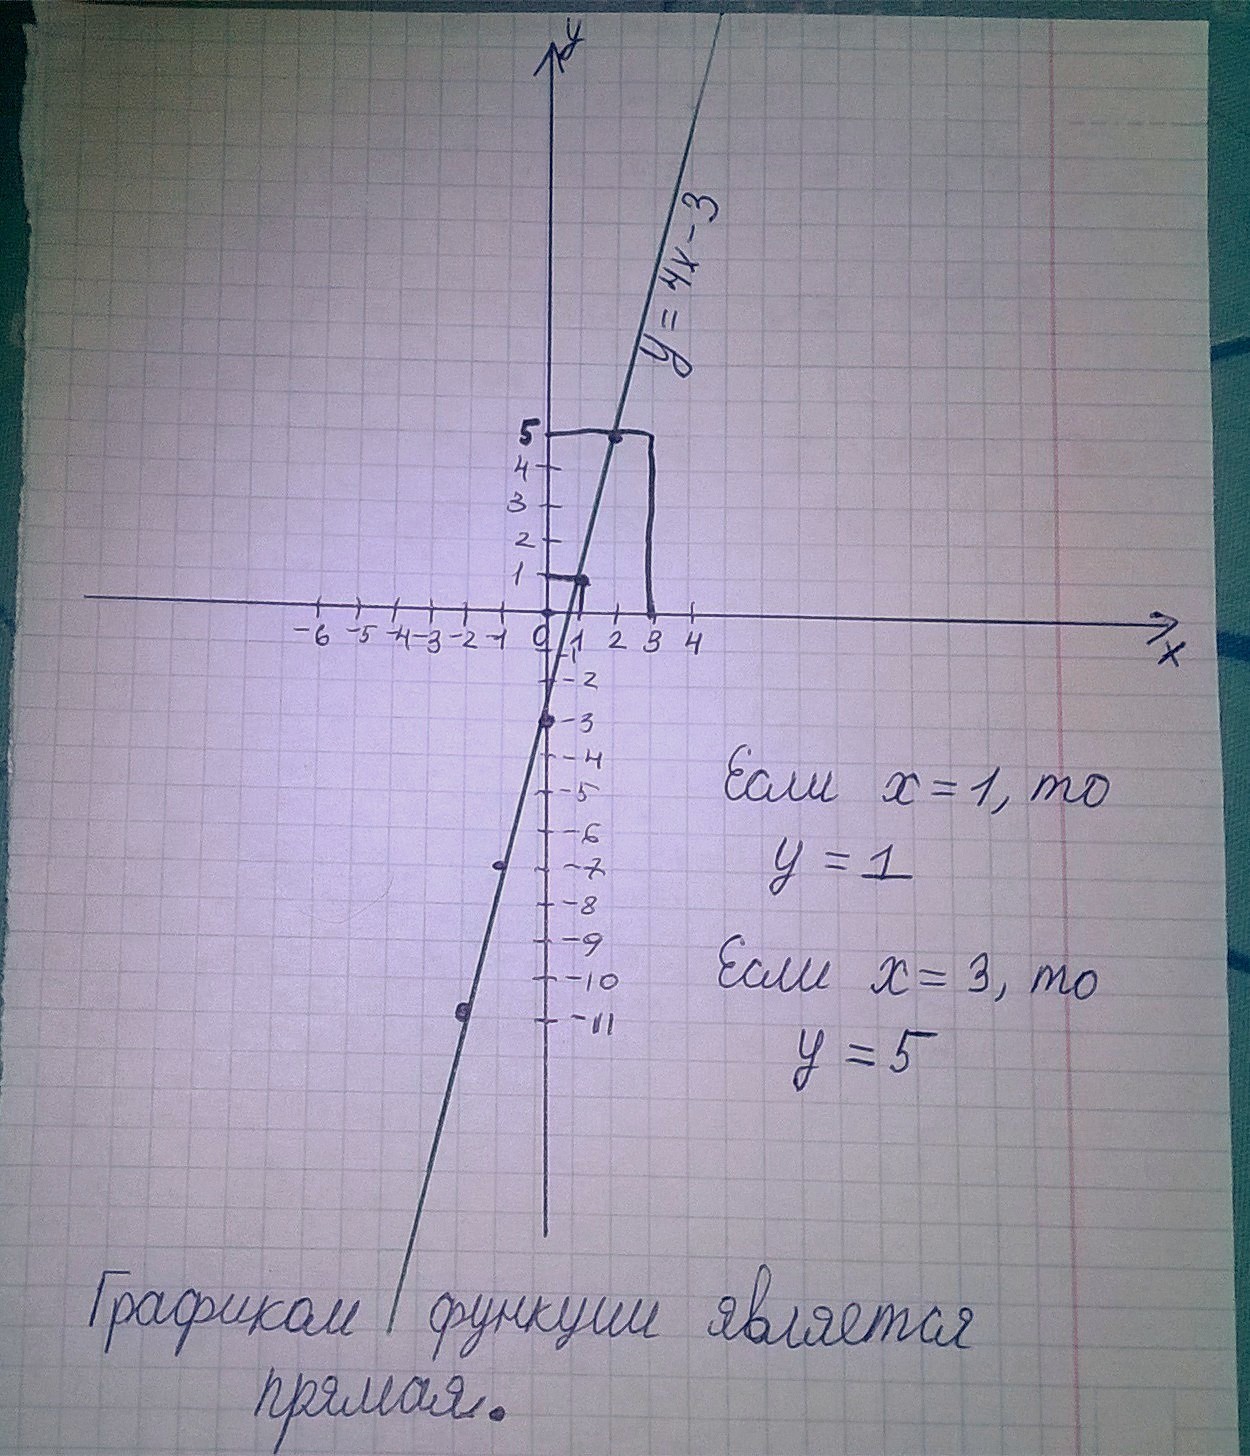 y
y = 4x - 3
5
4
3
2
1
-6 -5 -4 -3 -2 -1 0 1 2 3 4
x
-1
-2
-3
-4
-5
-6
-7
-8
-9
-10
-11
Если x = 1, то
y = 1
Если x = 3, то
y = 5
Графиком функции является
прямая.